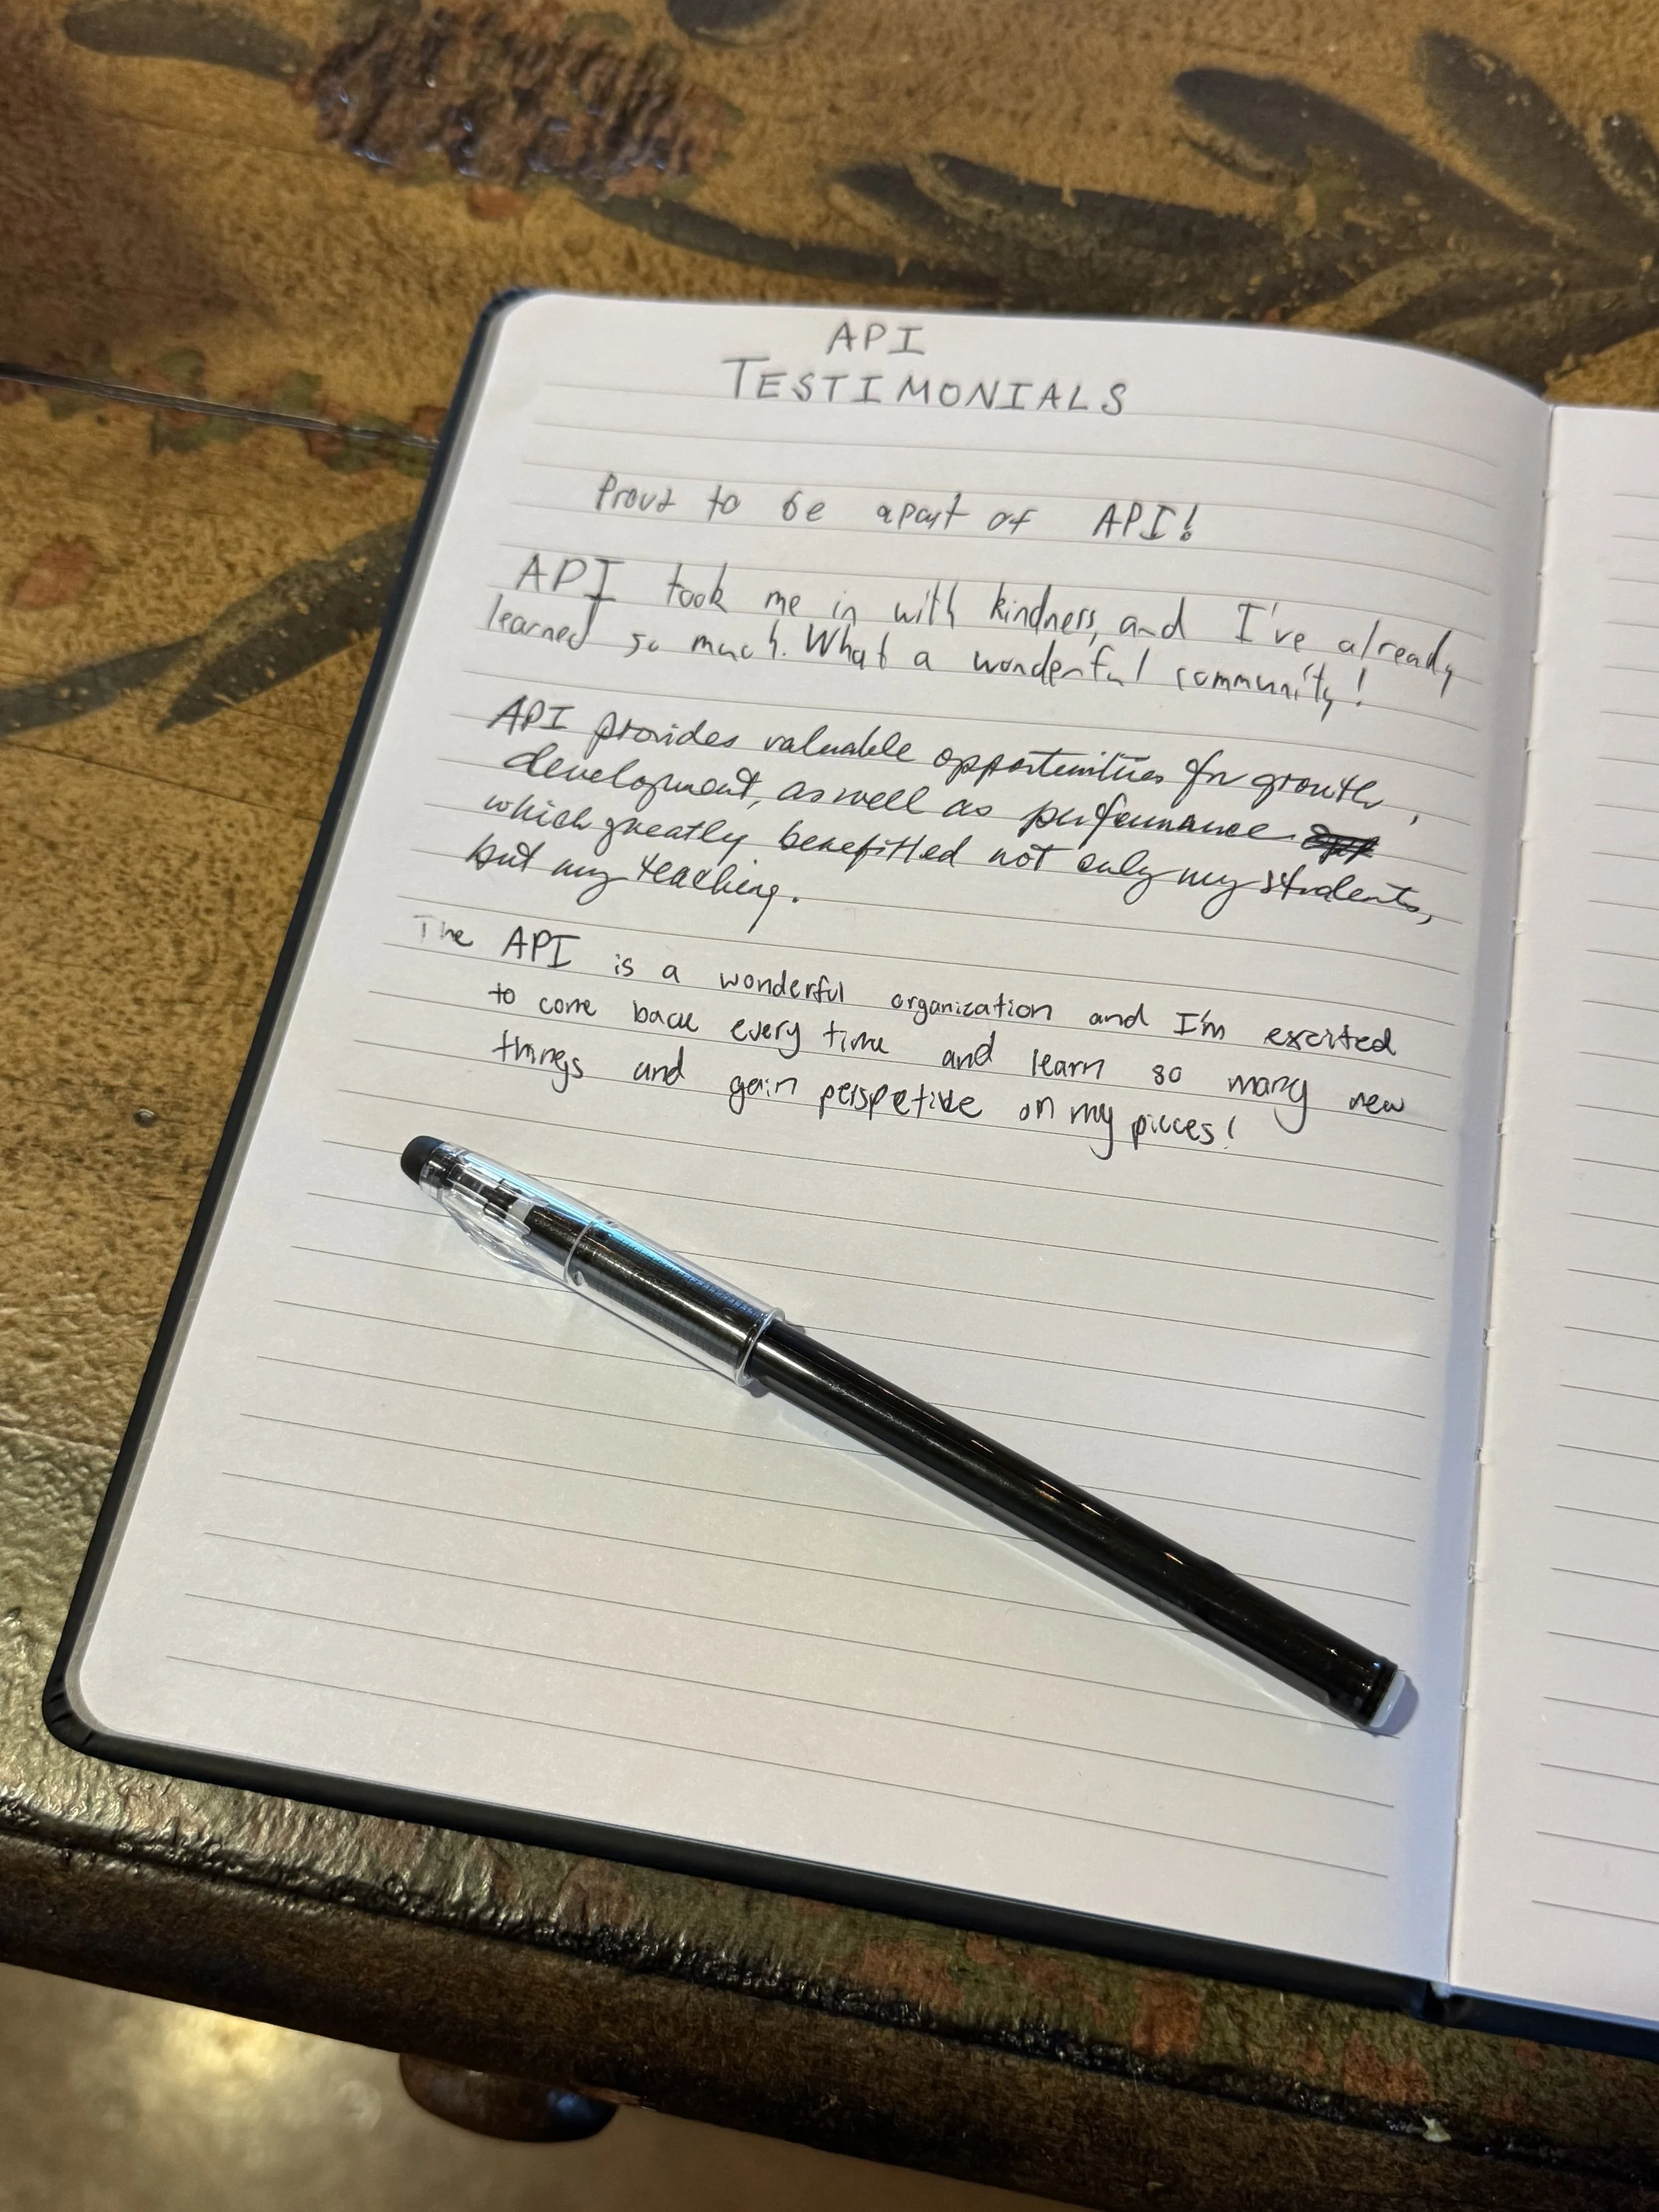 API
TESTIMONIALS
Proud to be apart of API!
API took me in with kindness, and I've already
learned so much. What a wonderful community!
API provides valuable opportunities for growth,
development, as well as performance,
which greatly benefitted not only my students,
but my teaching.
The API is a wonderful organization and I'm excited
to come back every time and learn so many new
things and gain perspetive on my pieces!